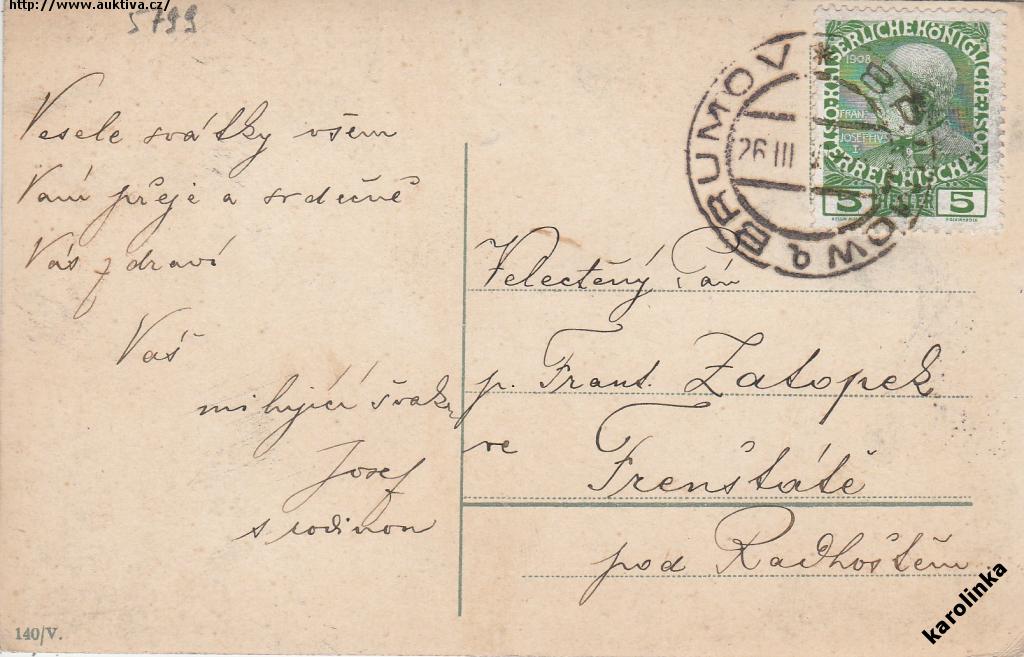 http://www.auktiva.cz/
5799
Vesele svátky všem
Vám přeje a srdečně
Vás zdraví
Váš
milující švakr
Josef
s rodinou
140/V.
BRUMOV
26 III
KAISERLICHE KÖNIGLICHE ÖSTERREICHISCHE POST
1908
FRANZ
JOSEF I
5 HELLER 5
Velectěný Pán
p. Frant. Zatopek
ve
Frenštátě
pod Radhoštěm
karolinka